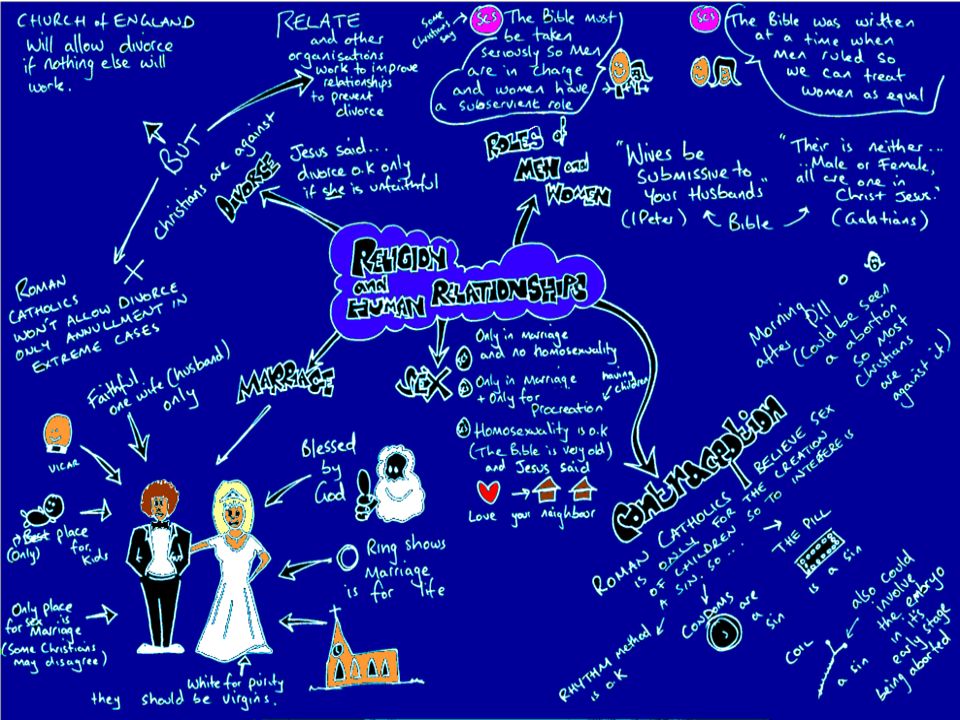 CHURCH of ENGLAND
will allow divorce
if nothing else will
work.
RELATE
and other
organisations
work to improve
relationships
to prevent
divorce
some
Christians
say
SCS
The Bible must
be taken
seriously so men
are in charge
and women have
a subservient role
SCS
The Bible was written
at a time when
men ruled so
we can treat
women as equal
BUT
christians are against
DIVORSE
Jesus said...
divorce o.k only
if she is unfaithful
ROLES of
MEN and
WOMEN
"Wives be
submissive to
Your Husbands"
(1Peter)
Bible
"Their is neither...
...Male or Female,
all are one in
Christ Jesus."
(Galatians)
ROMAN
CATHOLICS
WON'T ALLOW DIVORCE
ONLY ANNULLMENT IN
EXTREME CASES
RELIGION
and
HUMAN RELATIONSHIPS
Morning
after Pill
(Could be seen
a abortion
so most
Christians
are against it)
MARRIAGE
SEX
Only in marriage
and no homosexuality
Only in Marriage
+ Only for
Procreation
having
children
Homosexuality is o.k
(The Bible is very old)
and Jesus said
Love your neighbour
Contraception
ROMAN CATHOLICS BELIEVE SEX
IS ONLY FOR THE CREATION
OF CHILDREN SO TO INTEFERE IS
A SIN. SO....
THE PILL
is a sin
CONDOMS are
a sin
RHYTHM method
is O.K
COIL
a sin
also could
involve
the embryo
in it's
early stage
being aborted
Faithful
one wife (husband)
only
VICAR
Best place
(Only) for
kids
Only place
for sex is
Marriage
(Some Christians
may disagree)
Blessed
by
God
Ring shows
Marriage
is for life
White for purity
they should be virgins.